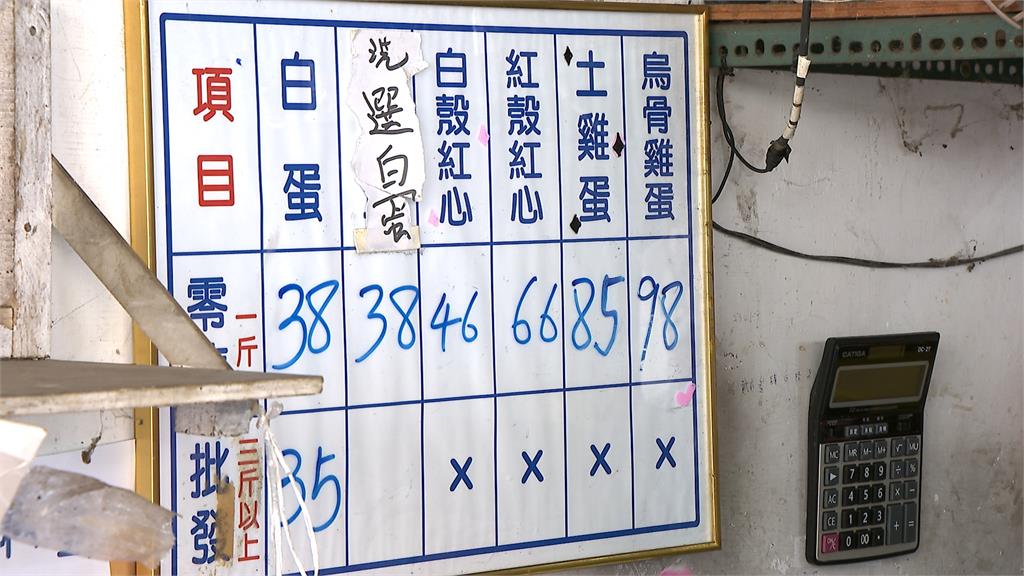 項目
白蛋
洗選白蛋
白殼紅心
紅殼紅心
土雞蛋
烏骨雞蛋
零
一斤
38
38
46
66
85
98
批發
三斤以上
35
X
X
X
X
CATIGA
DC-27
MC
MR
M-
M+
√
MU
7
8
9
÷
%
AC
4
5
6
×
-
CE
1
2
3
+
=
0
00
.